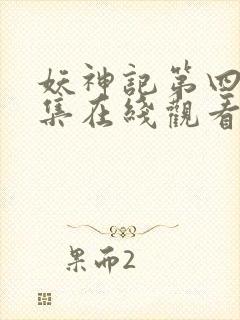 妖神記第四
集在綫觀看
果而2